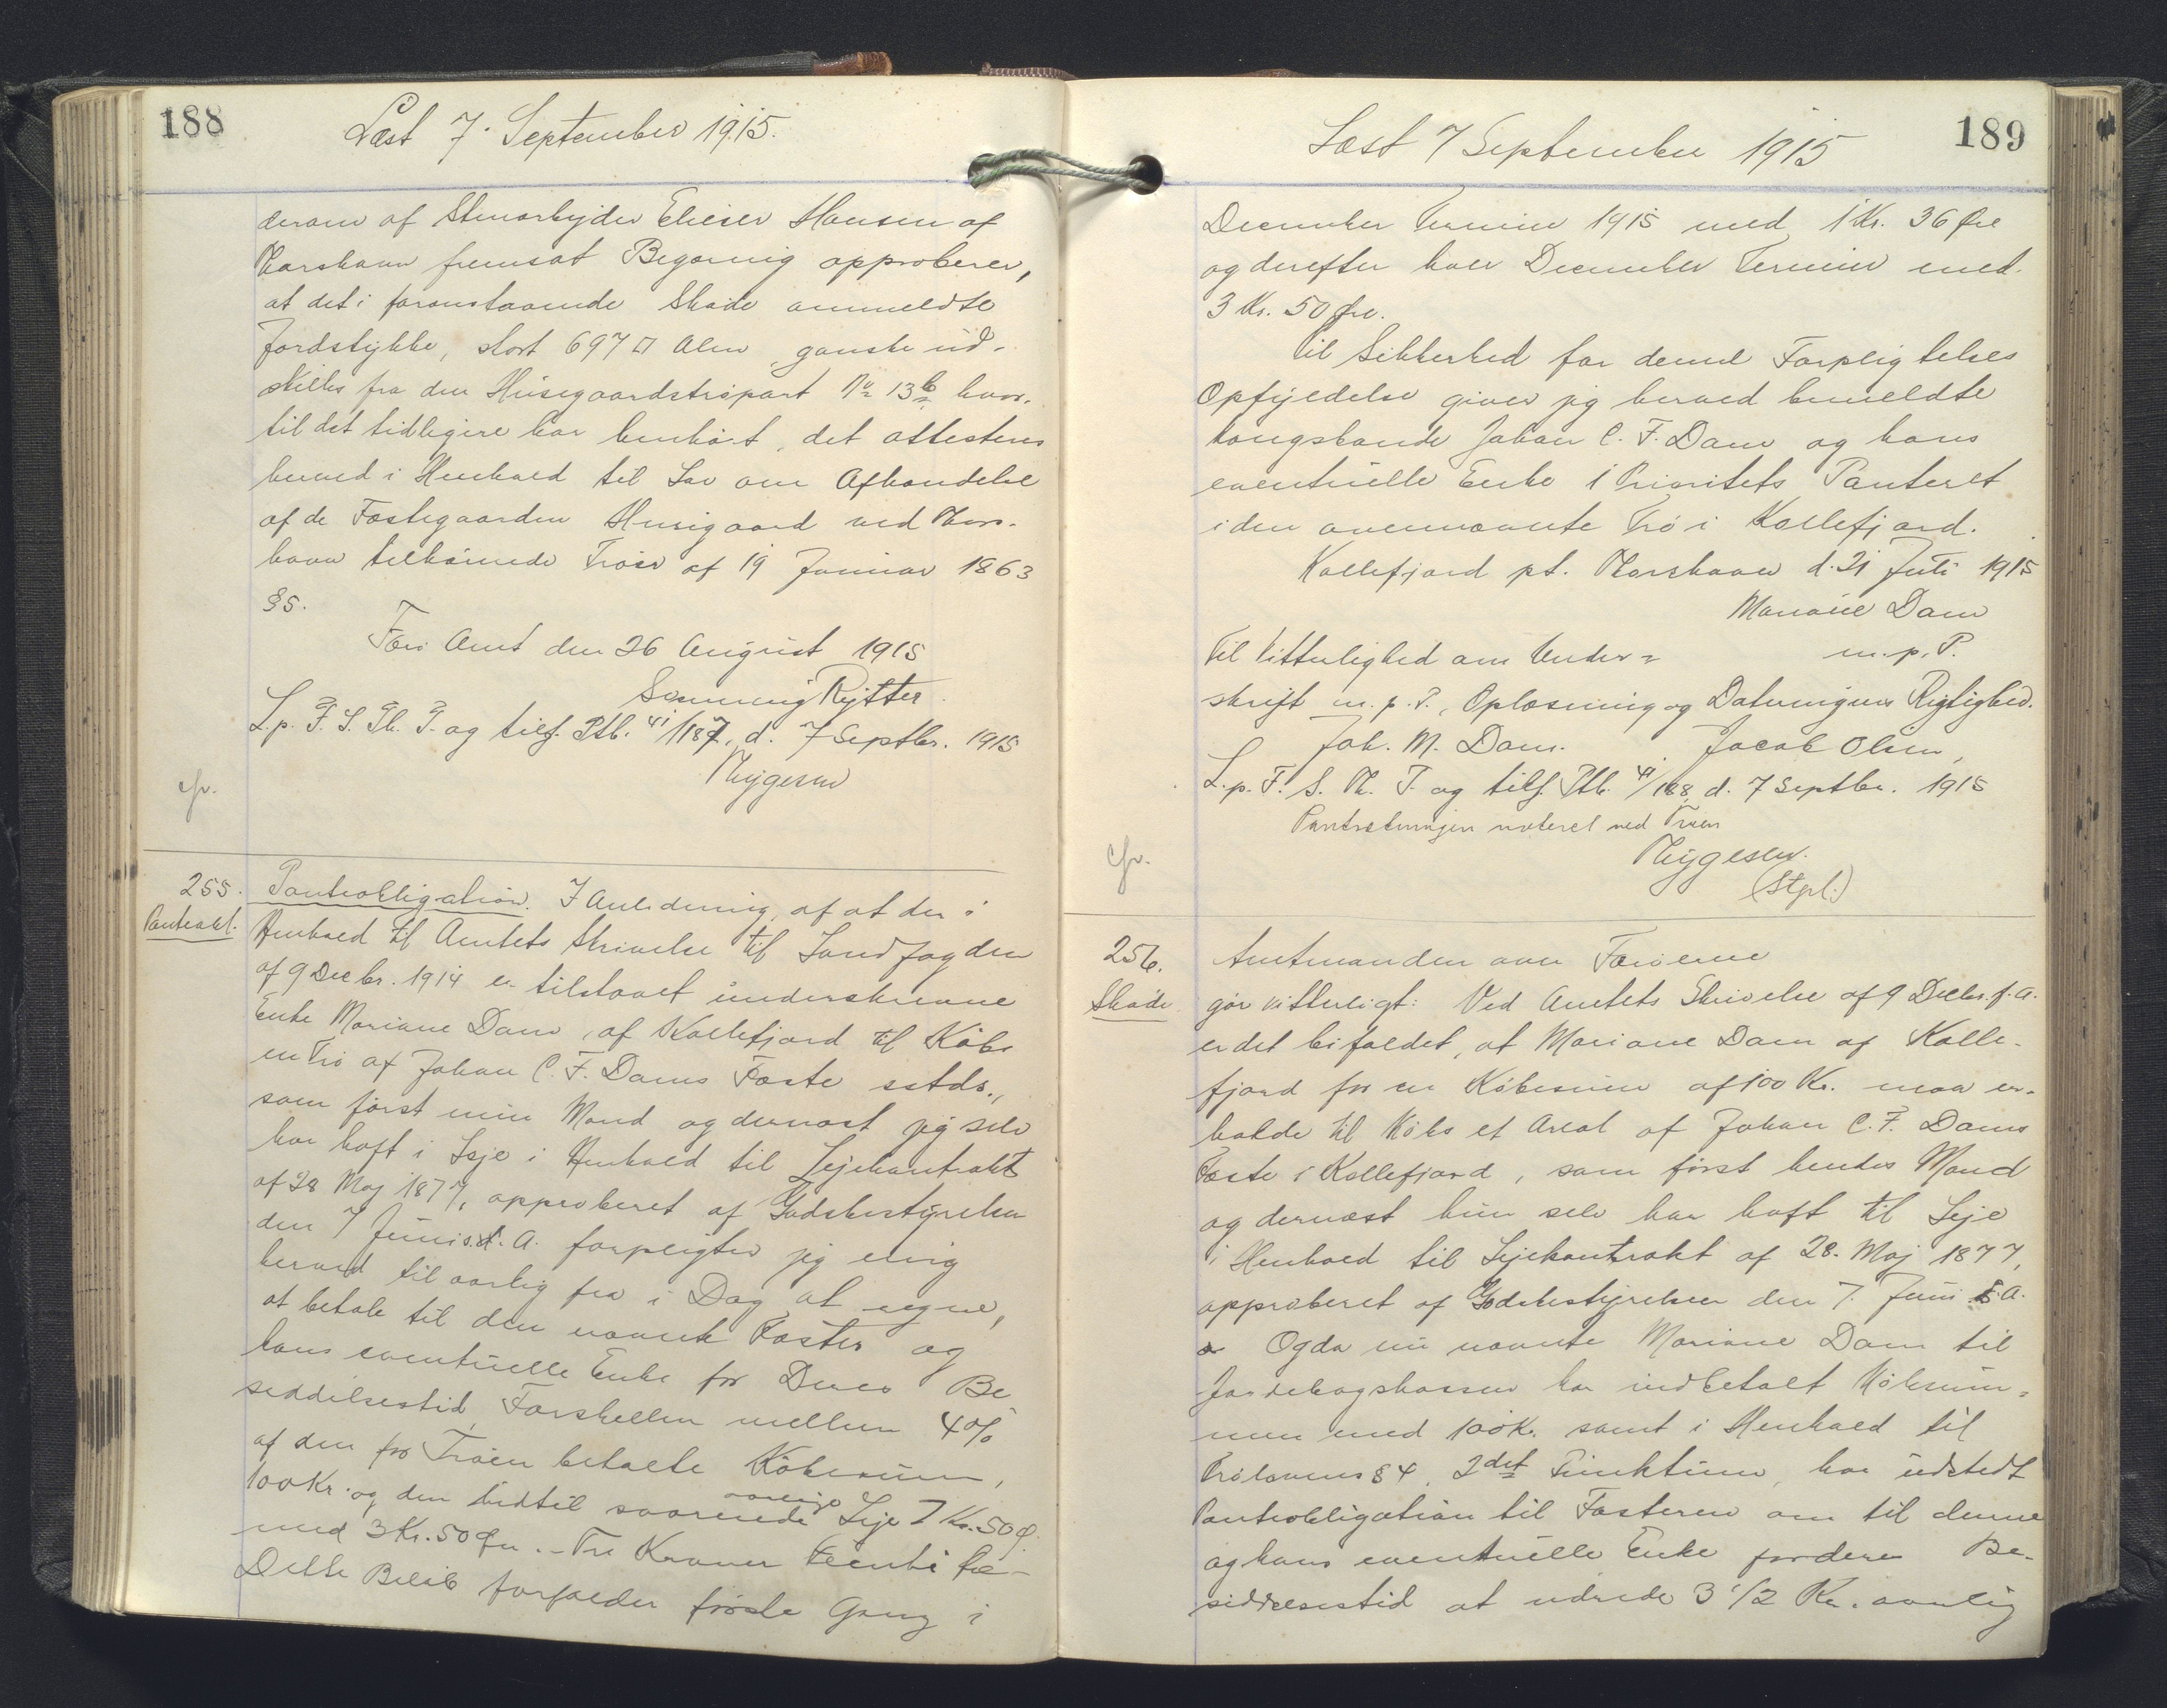 188
Læst 7. September 1915.
derom af Stenarbejder Elieser Hansen af
Thorshavn fremsat Begæring approberer,
at det i foranstaaende Skøde ommeldte
Jordstykke, stort 697 □ Alen, ganske ud-
skilles fra den Húsegaardstrøpart No 13b hvor-
til det tidligere har henhørt, det attesteres
herved i Henhold til Lov om Afhændelse
af de Fæstegaarden Húsigaard ved Thors-
havn tilhørende Trøer af 19 Januar 1863
§5.
Færø Amt den 26 August 1915
Svenning Rytter
L. p. F. S. Th. T. og tilf. Ptb. 41/187, d. 7 Septbr. 1915
Thygesen
cfr.
255.
Panteobl.
Panteobligation. I Anledning af at der i
Henhold til Amtets Skrivelse til Landfogden
af 9 Decbr. 1914 er tilstaaet underskrevne
Enke Mariane Dam, af Kollefjord til Købs
en Trø af Johan C. F. Dams Fæste sstds.,
som først min Mand og dernæst jeg selv
har haft i Leje i Henhold til Lejekontrakt
af 28 Maj 1877, approberet af Godsbestyrelsen
den 7 Juni s. A. forpligter jeg mig
herved til aarlig fra i Dag at regne,
at betale til den nævnte Fæster og
hans eventuelle Enke for Deres Be
siddelsestid, Forskellen mellem 4%
af den for Trøen betalte Købesum,
100 Kr. og den hidtil svarende aarlige Leje 7 Kr. 50 Ø.
med 3 Kr. 50 Øre. - Tre Kroner femti Øre -
Dette Beløb forfalder første Gang i
189
Læst 7 September 1915
December Termin 1915 med 1 Kr. 36 Øre
og derefter hver December Termin med
3 Kr. 50 Øre.
Til Sikkerhed for denne Forpligtelses
Opfyldelse giver jeg herved bemeldte
Kongsbonde Johan C. F. Dam og hans
eventuelle Enke 1 Prioritets Panteret
i den ovennævnte Trø i Kollefjord.
Kollefjord pt. Thorshavn d. 21 Juli 1915
Mariane Dam
m. p. P.
Til Vitterlighed om Under=
skrift m. p. P., Oplæsning og Dateringens Rigtighed.
Joh. M. Dam. Jacob Olsen,
L. p. F. S. Th. T. og tilf. Ptb. 41/188, d. 7 Septbr. 1915
Pantsætningen noteret ved Trøen
Thygesen.
(Stpl.)
cfr.
256.
Skøde
Amtmanden over Færøerne
gør vitterligt: Ved Amtets Skrivelse af 9 Decbr. f. A.
er det bifaldet, at Mariane Dam af Kolle-
fjord for en Købesum af 100 Kr. maa er-
holde til Købs et Areal af Johan C. F. Dams
Fæste i Kollefjord, som først hendes Mand
og dernæst hun selv har haft til Leje
i Henhold til Lejekontrakt af 28. Maj 1877,
approberet af Godsbestyrelsen den 7. Juni s. A.
Og da nu nævnte Mariane Dam til
Jordebogskassen har indbetalt Købesum=
men med 100 Kr. samt i Henhold til
Trølovens § 4, 2det Punktum, har udstedt
Panteobligation til Fæsteren om til denne
og hans eventuelle Enke for deres Be-
siddelsestid at udrede 3 1/2 Kr. aarlig